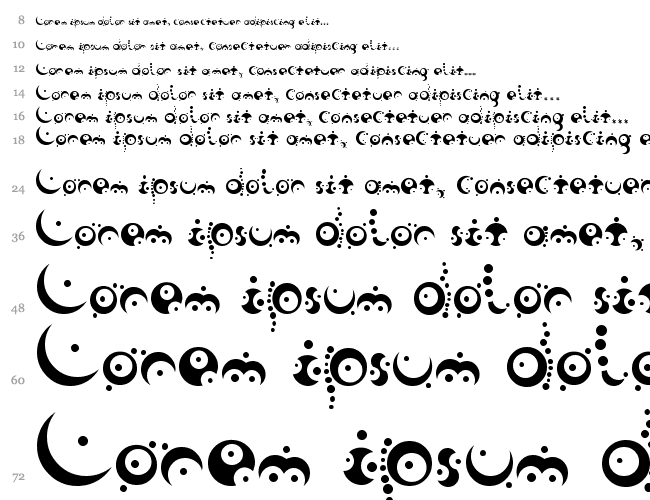 8 Lorem ipsum dolor sit amet, ConseCtetuer adipisCing elit...
10 Lorem ipsum dolor sit amet, ConseCtetuer adipisCing elit...
12 Lorem ipsum dolor sit amet, ConseCtetuer adipisCing elit...
14 Lorem ipsum dolor sit amet, ConseCtetuer adipisCing elit...
16 Lorem ipsum dolor sit amet, ConseCtetuer adipisCing elit...
18 Lorem ipsum dolor sit amet, ConseCtetuer adipisCing e
24 Lorem ipsum dolor sit amet, ConseCtetuer
36 Lorem ipsum dolor sit amet,
48 Lorem ipsum dolor sit
60 Lorem ipsum dol
72 Lorem ipsum d